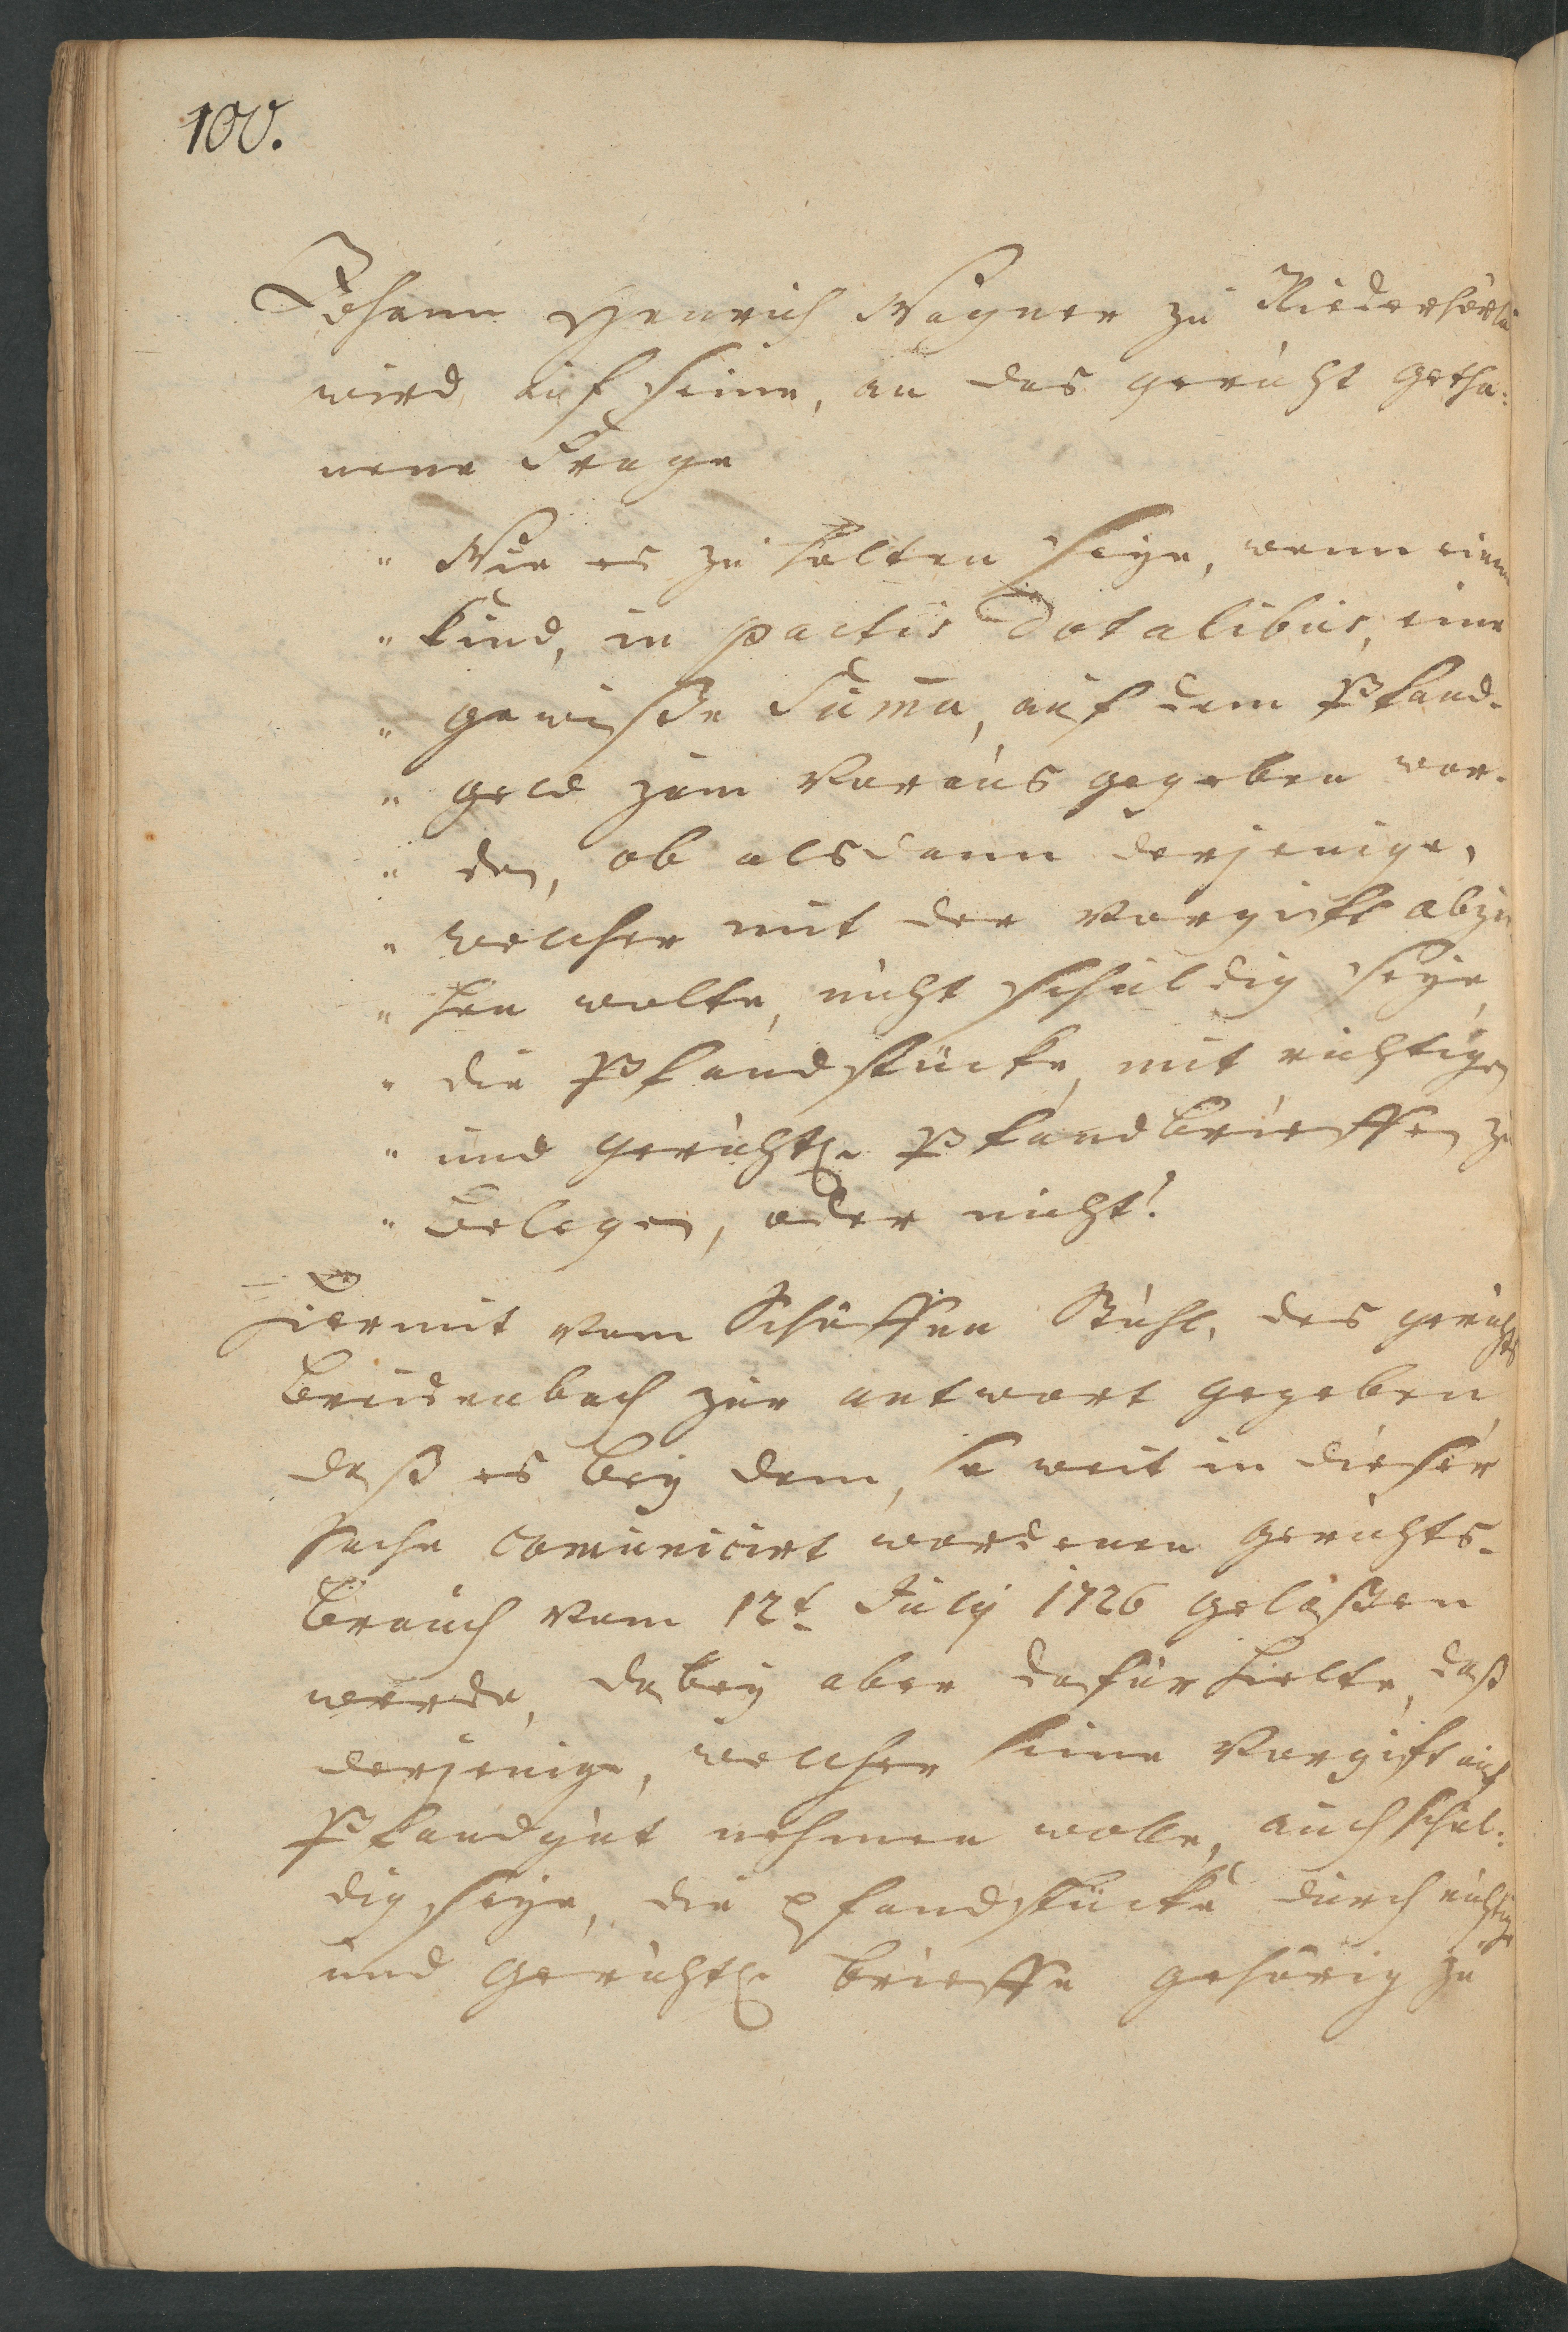 100.
Johann Henrich Wagner zu Niederhörle
wird auf seine, an das gericht getha:
nene Frage
" Wie es zu halten seye, wenn einem
" Kind, in pactis Dotalibus, eine
" gewisse Suma, auf dem Pfand-
" geld zum Voraus gegeben wor-
" den, ob alsdann derjenige,
" welcher mit der Vorgift abzie
" hen wolte, nicht schuldig seye,
" die Pfandstücke, mit richtigen
" und gerichtl. Pfandbrieffen zu
" belegen, oder nicht?
Hiermit vom Schöffen Stuhl, des gerichts
Breidenbach zur antwort gegeben,
daß es bey dem, so weit in dieser
Sache comunicirt wordenen gerichts-
brauch vom 12t July 1726 gelaßen
werde, dabey aber dafür hielte, daß
derjenige, welcher seine Vorgift auf
Pfandgut nehmen wolle, auch schul:
dig seye, die Pfandstücke durch richtige
und gerichtl. brieffe gehörig zu